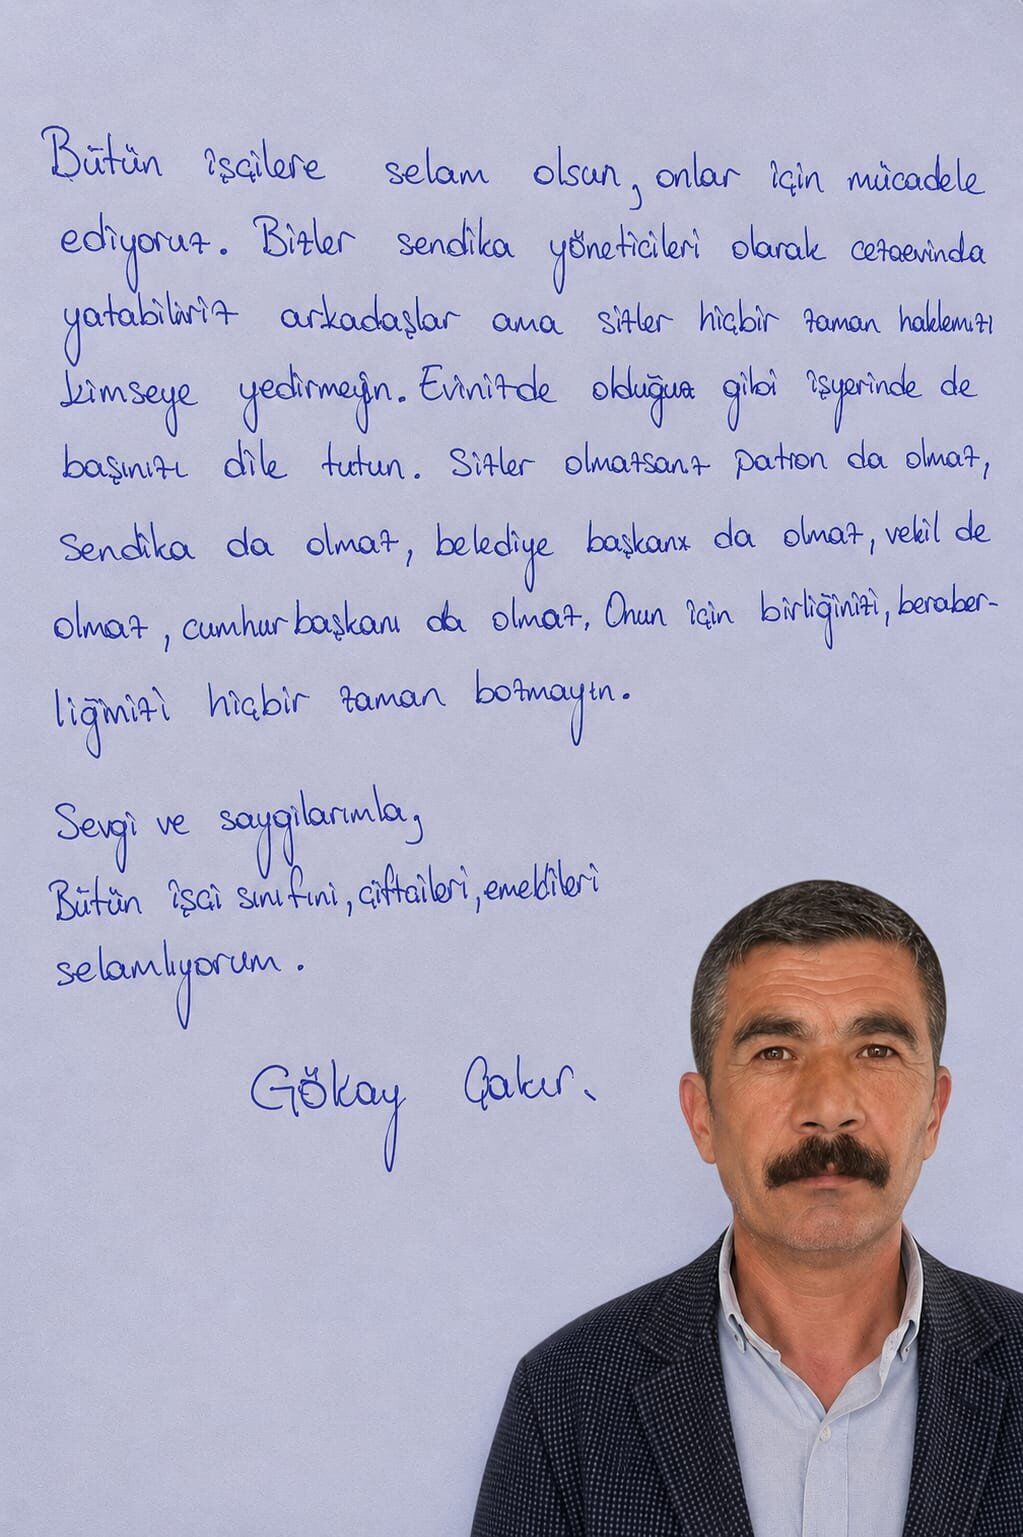 Bütün işçilere selam olsun, onlar için mücadele
ediyoruz. Bizler sendika yöneticileri olarak cezaevinda
yatabiliriz arkadaşlar ama sizler hiçbir zaman haklemızı
kimseye yedirmeyin. Evinizde olduğuz gibi işyerinde de
başınızı dile tutun. Sizler olmazsanz patron da olmaz,
sendika da olmaz, belediye başkanı da olmaz, vekil de
olmaz, cumhurbaşkanı da olmaz. Onun için birliğinizi, beraber-
liğinizi hiçbir zaman bozmayın.
Sevgi ve saygılarımla,
Bütün işçi sınıfını, çiftçileri, emekçileri
selamlıyorum.
Gökay Çakır.